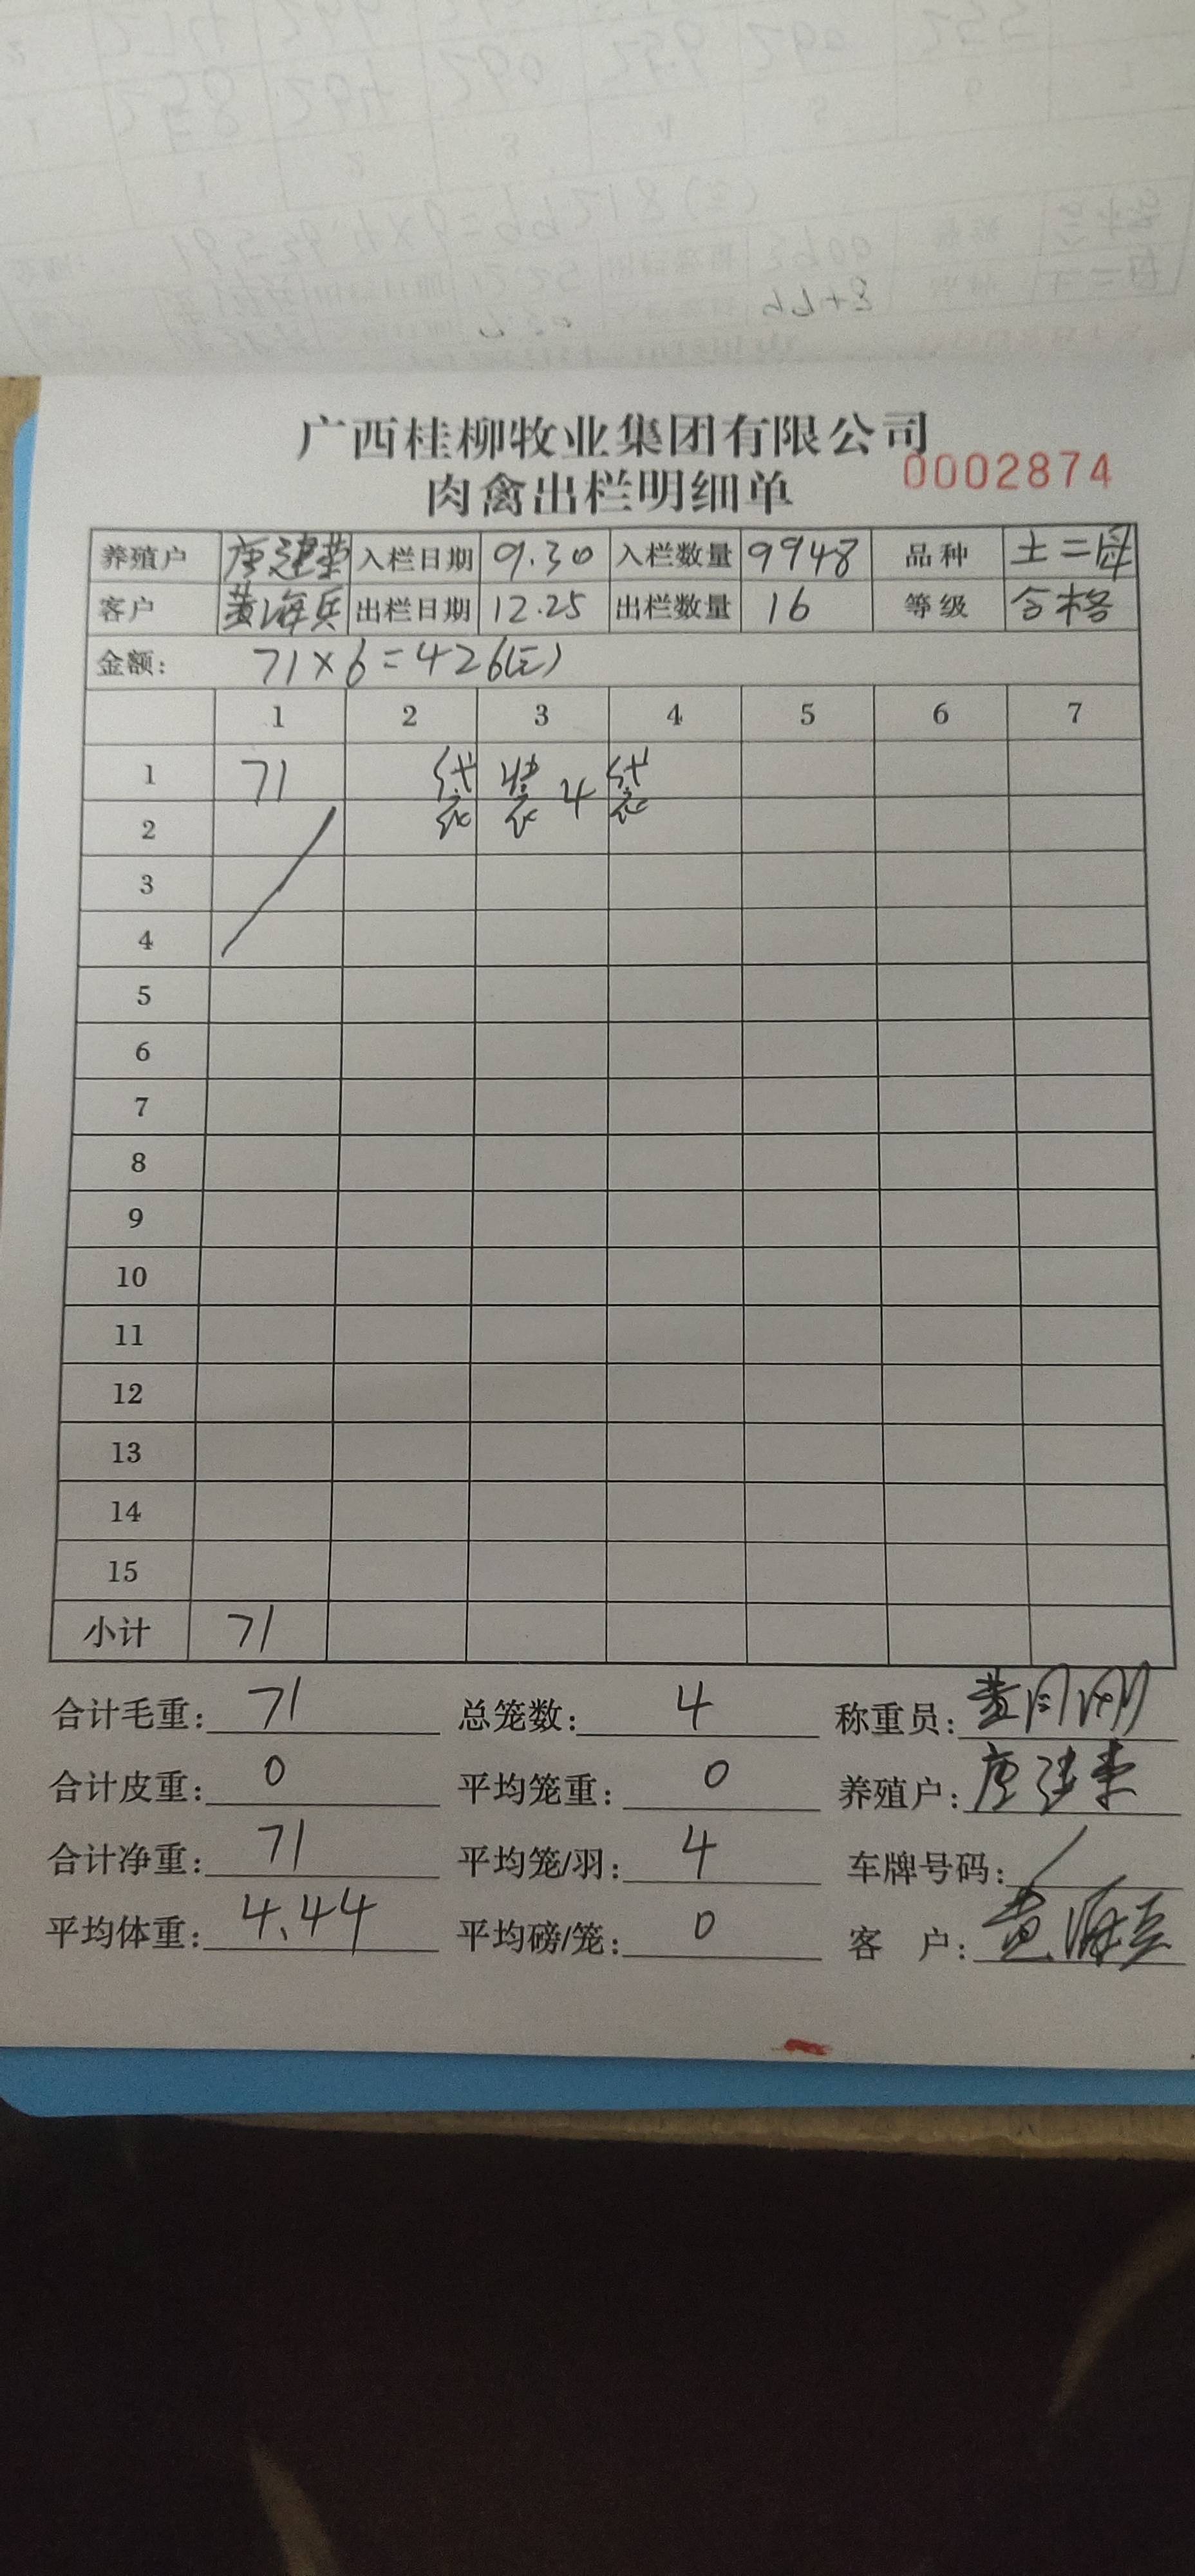 广西桂柳牧业集团有限公司
肉禽出栏明细单 0002874
养殖户 唐建荣 入栏日期 9.30 入栏数量 9948 品种 土二母
客户 黄海兵 出栏日期 12.25 出栏数量 16 等级 合格
金额: 71×6=426(元)
1 2 3 4 5 6 7
1 71 袋装4袋
2
3
4
5
6
7
8
9
10
11
12
13
14
15
小计 71
合计毛重: 71 总笼数: 4 称重员: 黄
合计皮重: 0 平均笼重: 0 养殖户: 唐建荣
合计净重: 71 平均笼/羽: 4 车牌号码: /
平均体重: 4.44 平均磅/笼: 0 客 户: 黄海兵